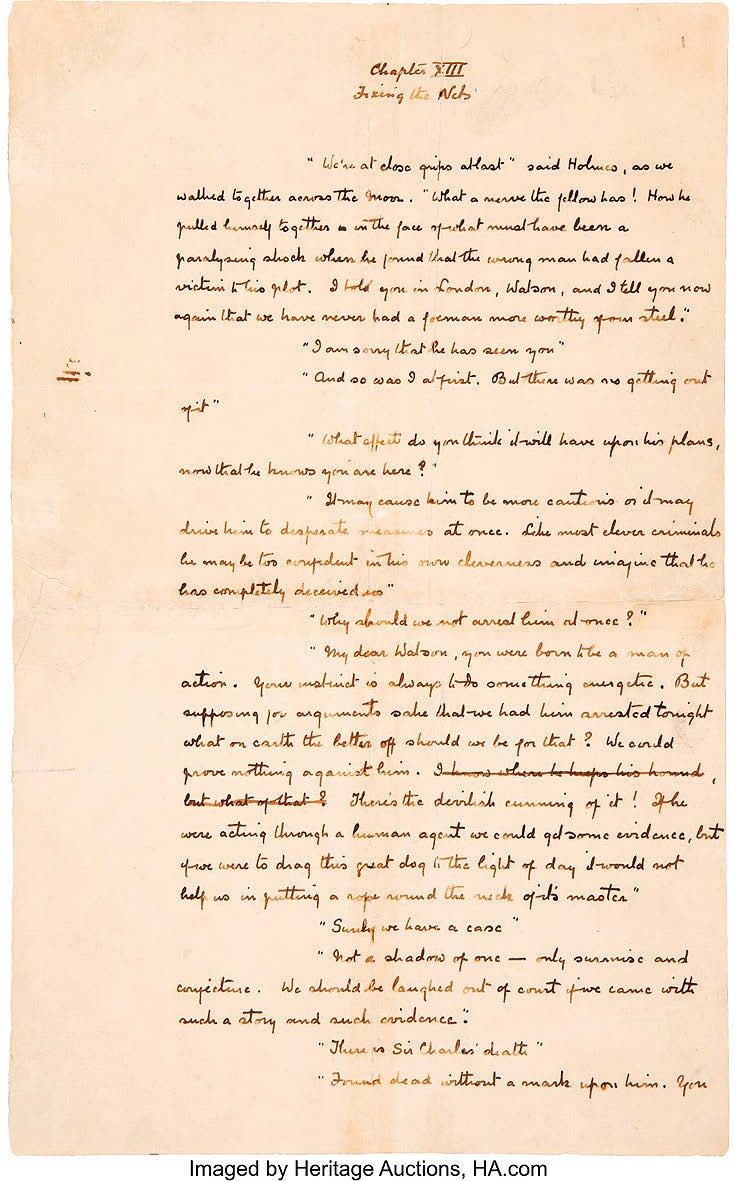 Chapter XIII
Fixing the Nets
"We're at close grips at last" said Holmes, as we
walked together across the Moor. "What a nerve the fellow has! How he
pulled himself together in the face of what must have been a
paralysing shock when he found that the wrong man had fallen a
victim to his plot. I told you in London, Watson, and I tell you now
again that we have never had a foeman more worthy of our steel."
"I am sorry that he has seen you"
"And so was I at first. But there was no getting out
of it"
"What affect do you think it will have upon his plans,
now that he knows you are here?"
"It may cause him to be more cautious or it may
drive him to desperate measures at once. Like most clever criminals
he may be too confident in his own cleverness and imagine that he
has completely deceived us"
"Why should we not arrest him at once?"
"My dear Watson, you were born to be a man of
action. Your instinct is always to do something energetic. But
supposing for arguments sake that we had him arrested tonight
what on earth the better off should we be for that? We could
prove nothing against him. I know where he keeps his hound,
but what of that? There's the devilish cunning of it! If he
were acting through a human agent we could get some evidence, but
if we were to drag this great dog to the light of day it would not
help us in putting a rope round the neck of its master"
"Surely we have a case"
"Not a shadow of one — only surmise and
conjecture. We should be laughed out of court if we came with
such a story and such evidence".
"There is Sir Charles' death"
"Found dead without a mark upon him. You
Imaged by Heritage Auctions, HA.com